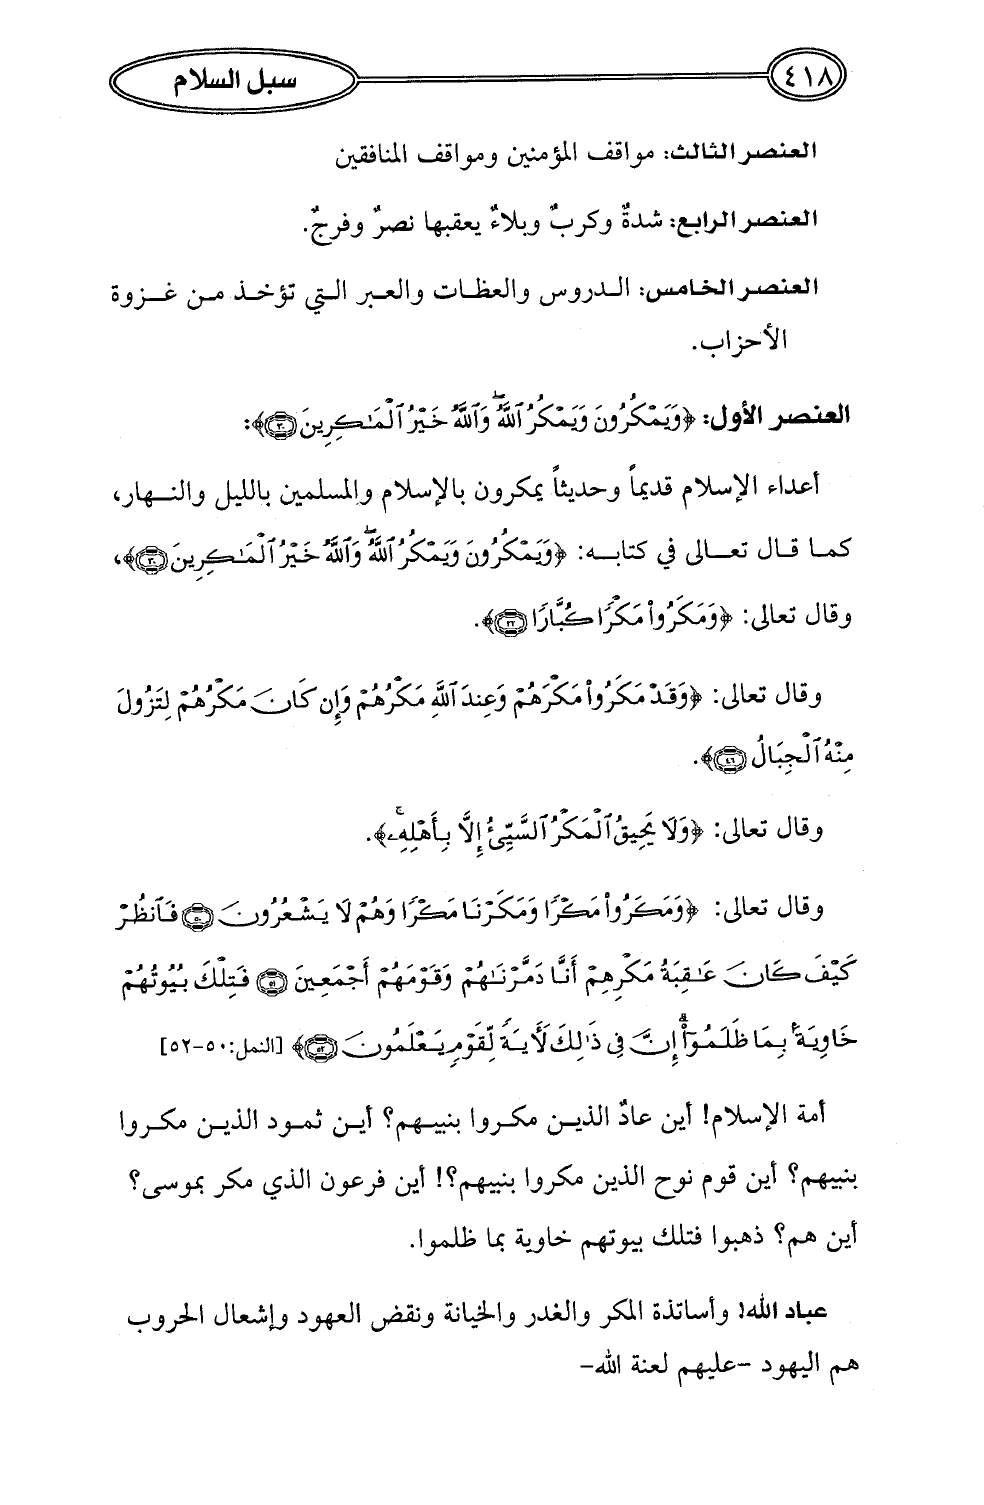 ٤١٨
سبل السلام
العنصر الثالث: مواقف المؤمنين ومواقف المنافقين
العنصر الرابع: شدةٌ وكربٌ وبلاءٌ يعقبها نصرٌ وفرجٌ.
العنصر الخامس: الدروس والعظات والعبر التي تؤخذ من غزوة
الأحزاب.
العنصر الأول: ﴿وَيَمْكُرُونَ وَيَمْكُرُ ٱللَّهُ ۖ وَٱللَّهُ خَيْرُ ٱلْمَـٰكِرِينَ ٣٠﴾:
أعداء الإسلام قديماً وحديثاً يمكرون بالإسلام والمسلمين بالليل والنهار،
كما قال تعالى في كتابه: ﴿وَيَمْكُرُونَ وَيَمْكُرُ ٱللَّهُ ۖ وَٱللَّهُ خَيْرُ ٱلْمَـٰكِرِينَ ٣٠﴾،
وقال تعالى: ﴿وَمَكَرُوا۟ مَكْرًا كُبَّارًا ٢٢﴾.
وقال تعالى: ﴿وَقَدْ مَكَرُوا۟ مَكْرَهُمْ وَعِندَ ٱللَّهِ مَكْرُهُمْ وَإِن كَانَ مَكْرُهُمْ لِتَزُولَ
مِنْهُ ٱلْجِبَالُ ٤٦﴾.
وقال تعالى: ﴿وَلَا يَحِيقُ ٱلْمَكْرُ ٱلسَّيِّئُ إِلَّا بِأَهْلِهِۦ ۚ﴾.
وقال تعالى: ﴿وَمَكَرُوا۟ مَكْرًا وَمَكَرْنَا مَكْرًا وَهُمْ لَا يَشْعُرُونَ ٥٠ فَٱنظُرْ
كَيْفَ كَانَ عَـٰقِبَةُ مَكْرِهِمْ أَنَّا دَمَّرْنَـٰهُمْ وَقَوْمَهُمْ أَجْمَعِينَ ٥١ فَتِلْكَ بُيُوتُهُمْ
خَاوِيَةًۢ بِمَا ظَلَمُوٓا۟ ۗ إِنَّ فِى ذَٰلِكَ لَـَٔايَةً لِّقَوْمٍ يَعْلَمُونَ ٥٢﴾ [النمل:٥٠-٥٢]
أمة الإسلام! أين عادٌ الذين مكروا بنبيهم؟ أين ثمود الذين مكروا
بنبيهم؟ أين قوم نوح الذين مكروا بنبيهم؟! أين فرعون الذي مكر بموسى؟
أين هم؟ ذهبوا فتلك بيوتهم خاوية بما ظلموا.
عباد الله! وأساتذة المكر والغدر والخيانة ونقض العهود وإشعال الحروب
هم اليهود -عليهم لعنة الله-